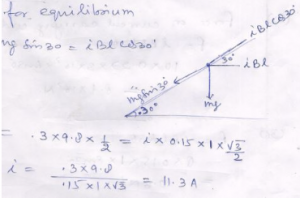 for equilibrium
mg Sin30 = iBl Cos30°
iBl Cos30°
30°
iBl
mg Sin30°
mg
30°
= .3×9.8×1/2 = i×0.15×1×√3/2
i = .3×9.8/.15×1×√3 = 11.3A